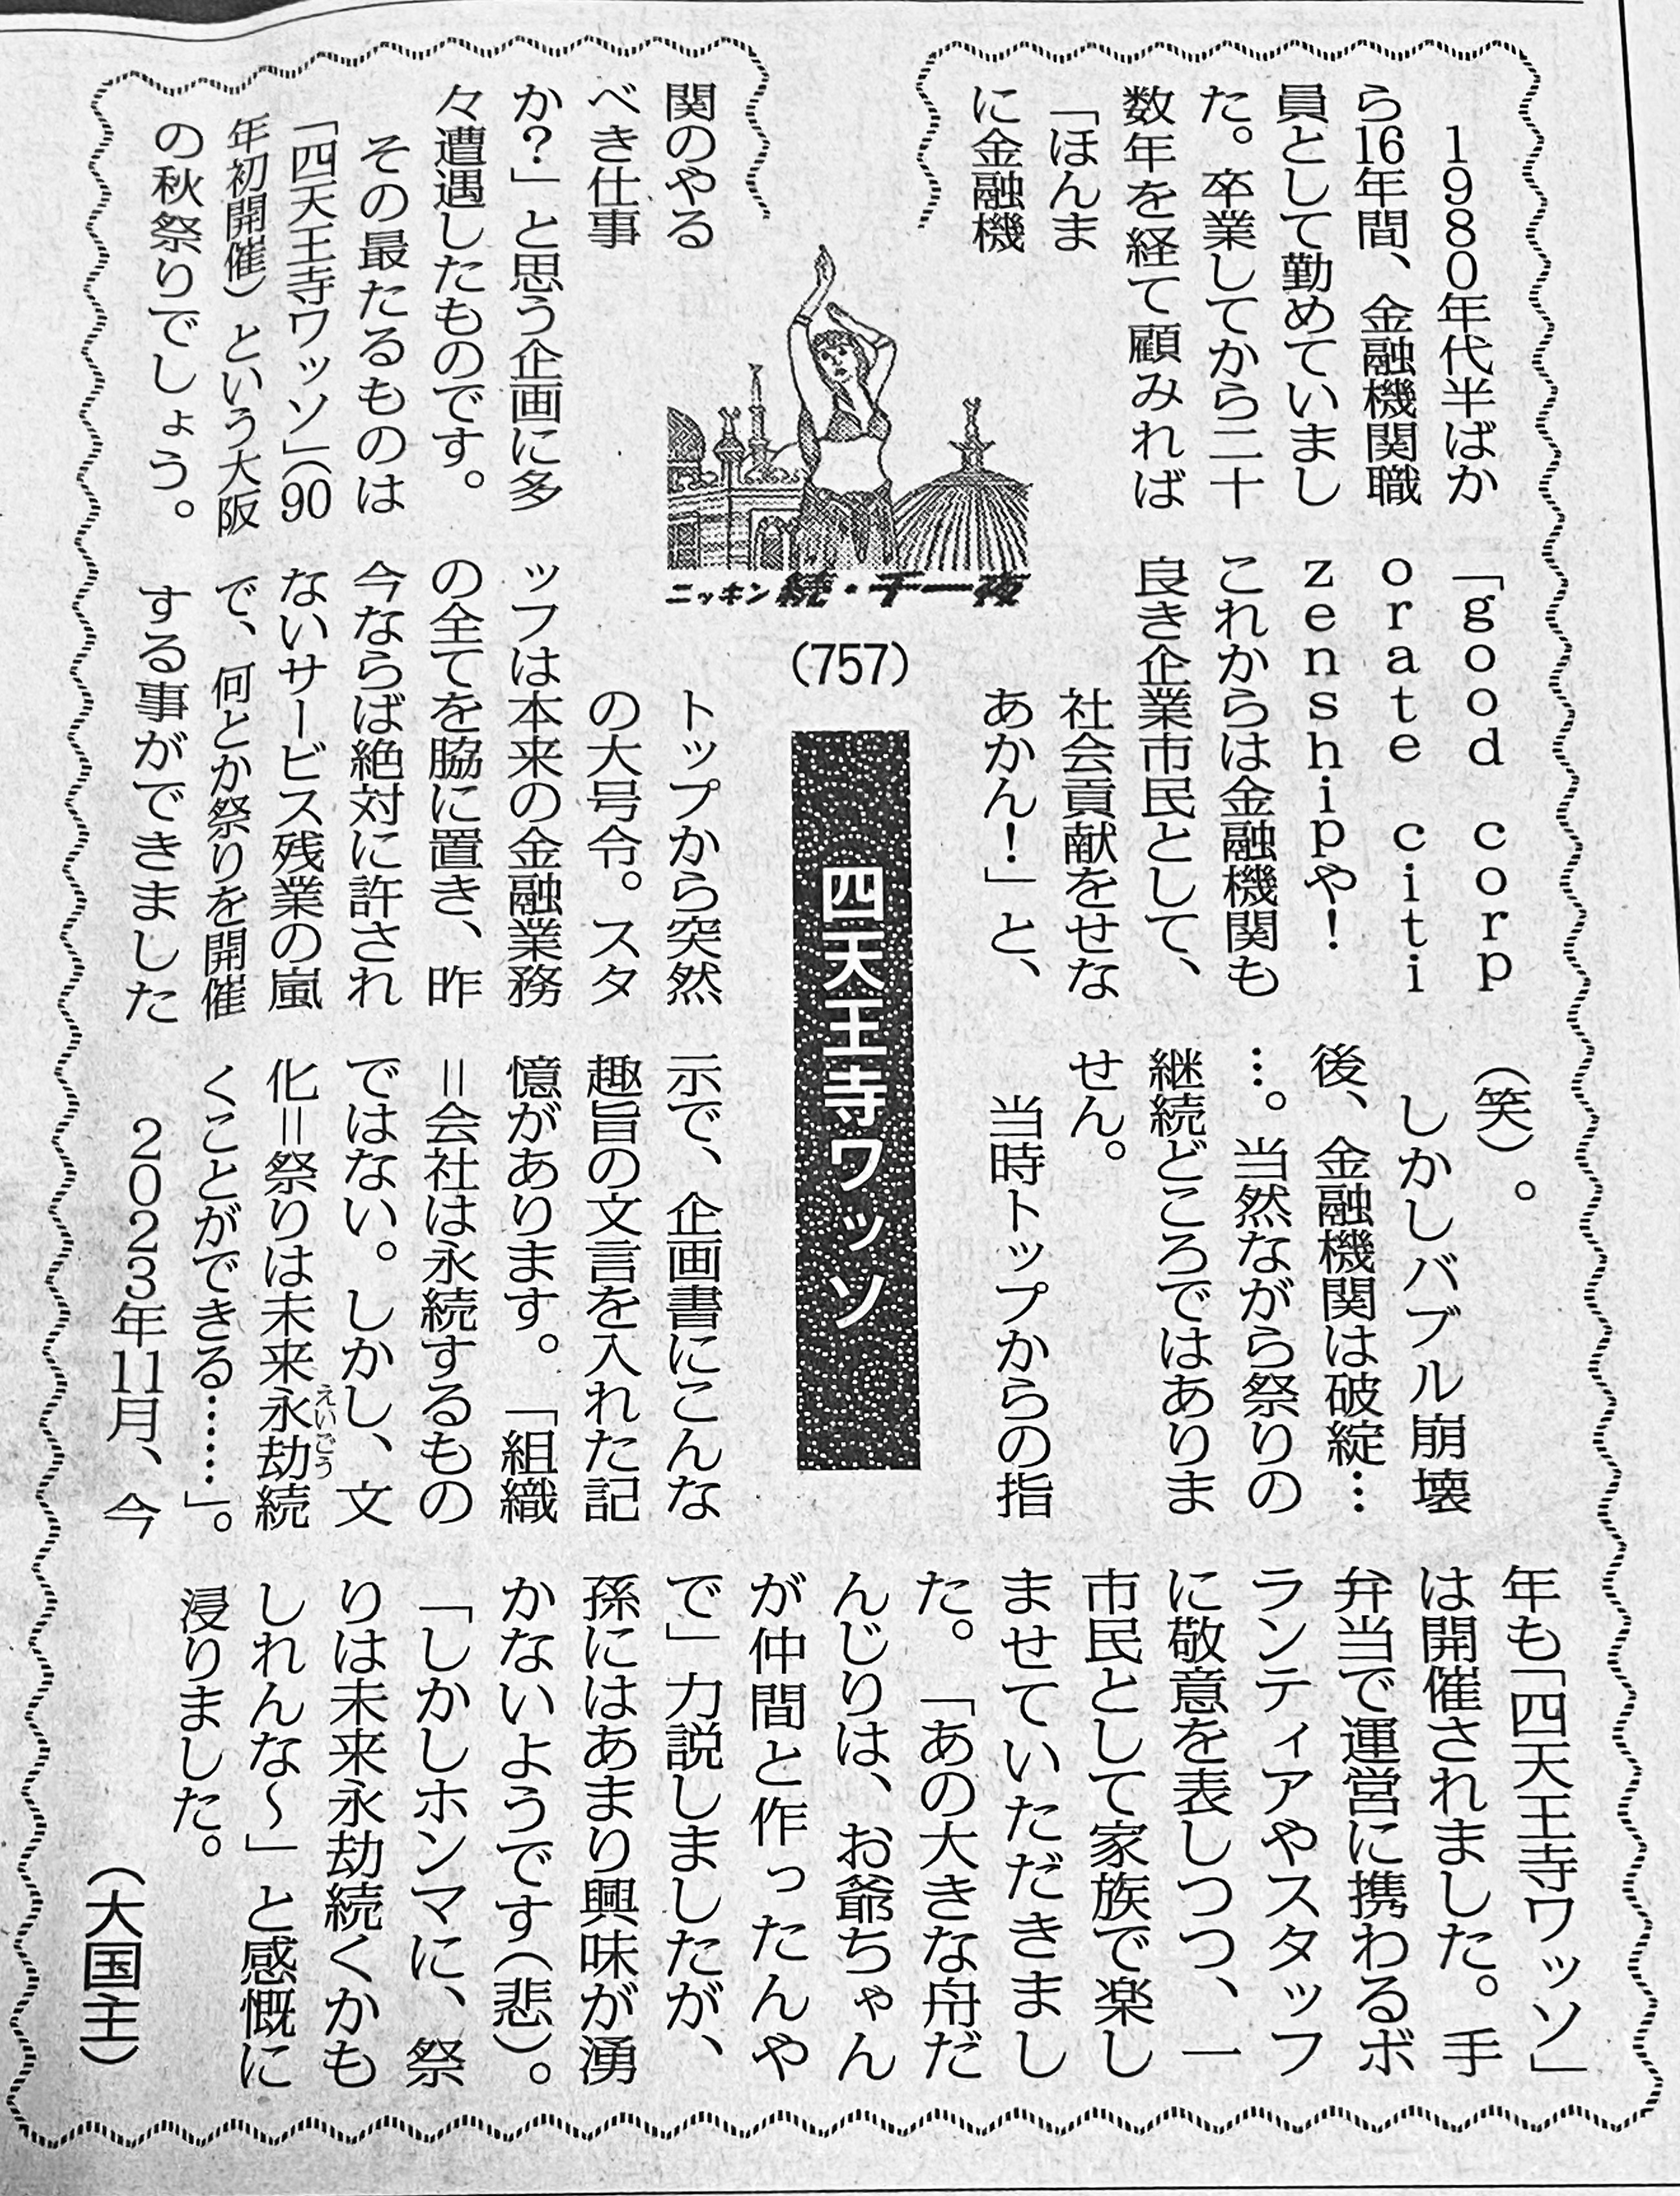 ニッキン 続・千一夜
(757)
四天王寺ワッソ
1980年代半ばか
ら16年間、金融機関職
員として勤めていまし
た。卒業してから二十
数年を経て顧みれば
「ほんま
に金融機
関のやる
べき仕事
か?」と思う企画に多
々遭遇したものです。
その最たるものは
「四天王寺ワッソ」(90
年初開催)という大阪
の秋祭りでしょう。
「good corp
orate citi
zenshipや!
これからは金融機関も
良き企業市民として、
社会貢献をせな
あかん!」と、
トップから突然
の大号令。スタ
ッフは本来の金融業務
の全てを脇に置き、昨
今ならば絶対に許され
ないサービス残業の嵐
で、何とか祭りを開催
する事ができました
(笑)。
しかしバブル崩壊
後、金融機関は破綻…
…。当然ながら祭りの
継続どころではありま
せん。
当時トップからの指
示で、企画書にこんな
趣旨の文言を入れた記
憶があります。「組織
=会社は永続するもの
ではない。しかし、文
化=祭りは未来永劫続
えいごう
くことができる……」。
2023年11月、今
年も「四天王寺ワッソ」
は開催されました。手
弁当で運営に携わるボ
ランティアやスタッフ
に敬意を表しつつ、一
市民として家族で楽し
ませていただきまし
た。「あの大きな舟だ
んじりは、お爺ちゃん
が仲間と作ったんや
で」力説しましたが、
孫にはあまり興味が湧
かないようです(悲)。
「しかしホンマに、祭
りは未来永劫続くかも
しれんな～」と感慨に
浸りました。
(大国主)